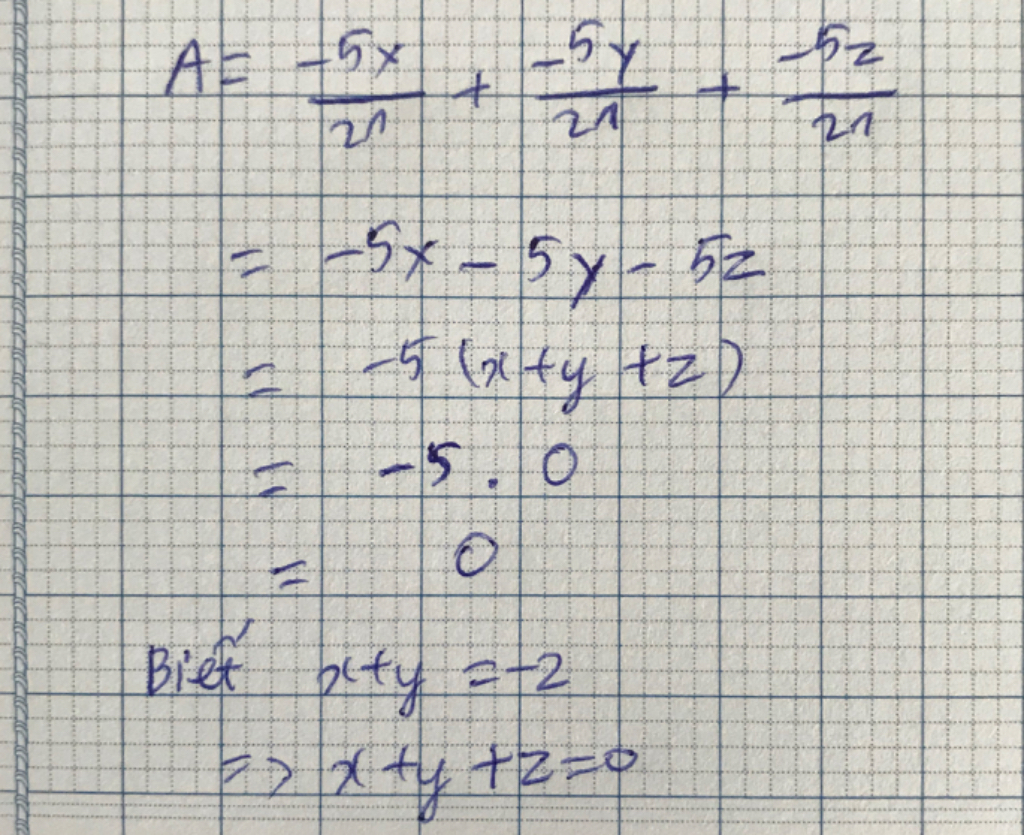 A = -5x/21 + -5y/21 + -5z/21
= -5x - 5y - 5z
= -5 (x+y+z)
= -5 . 0
= 0
Biết x+y = -2
=> x+y+z=0